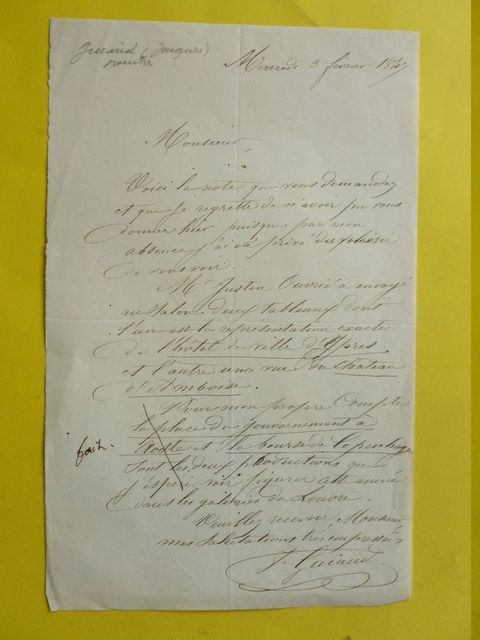 (Jacques)
peintre
Mercredi 3 février 1847
Monsieur
Voici la note que vous demandez
et que je regrette de n'avoir pu vous
donner hier puisque par mon
absence j'ai été privé du plaisir
de vous voir.
Mr Justin Ouvrié a envoyé
au Salon deux tableaux dont
l'un est la représentation exacte
de l'hôtel de ville d'Ypres
et l'autre une vue du Château
d'Amboise.
Pour mon propre Compte
la place du gouvernement à
et la bourse de Copenhague
sont les deux productions que
j'espère voir figurer cette année
dans les galeries du Louvre.
Veuillez recevoir, Monsieur
mes salutations très empressées
J. Guiaud